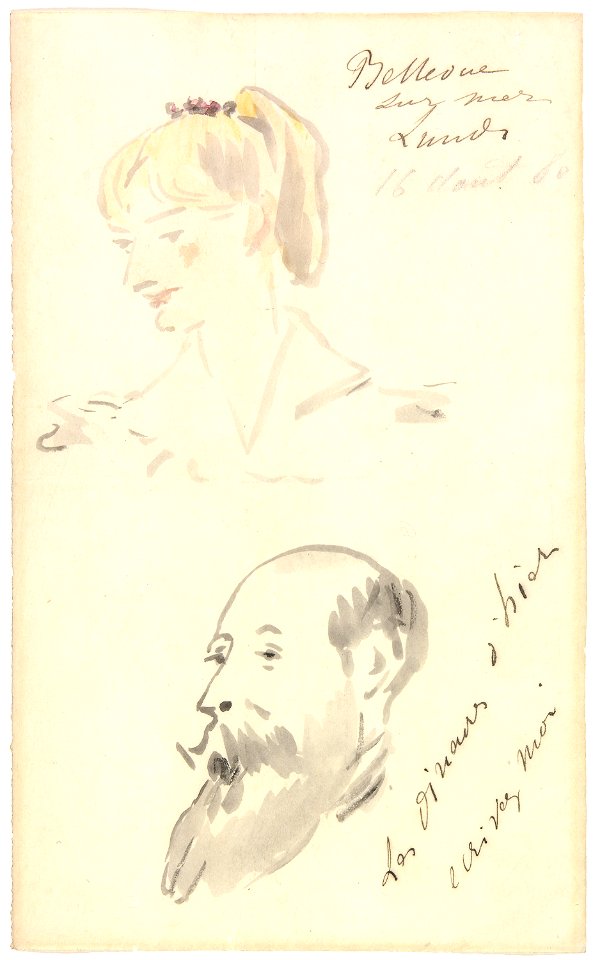 Bellevue
sur mer
Lundi
16 Aout 60
Les dineurs d'hier
ecrivez moi